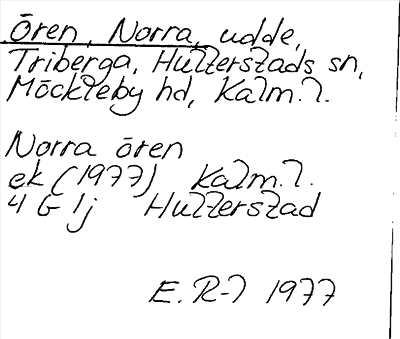 Ören, Norra, udde,
Triberga, Hulterstads sn,
Möckleby hd, Kalm.l.
Norra ören
ek (1977) Kalm.l.
4 G 1j Hulterstad
E. R-l 1977